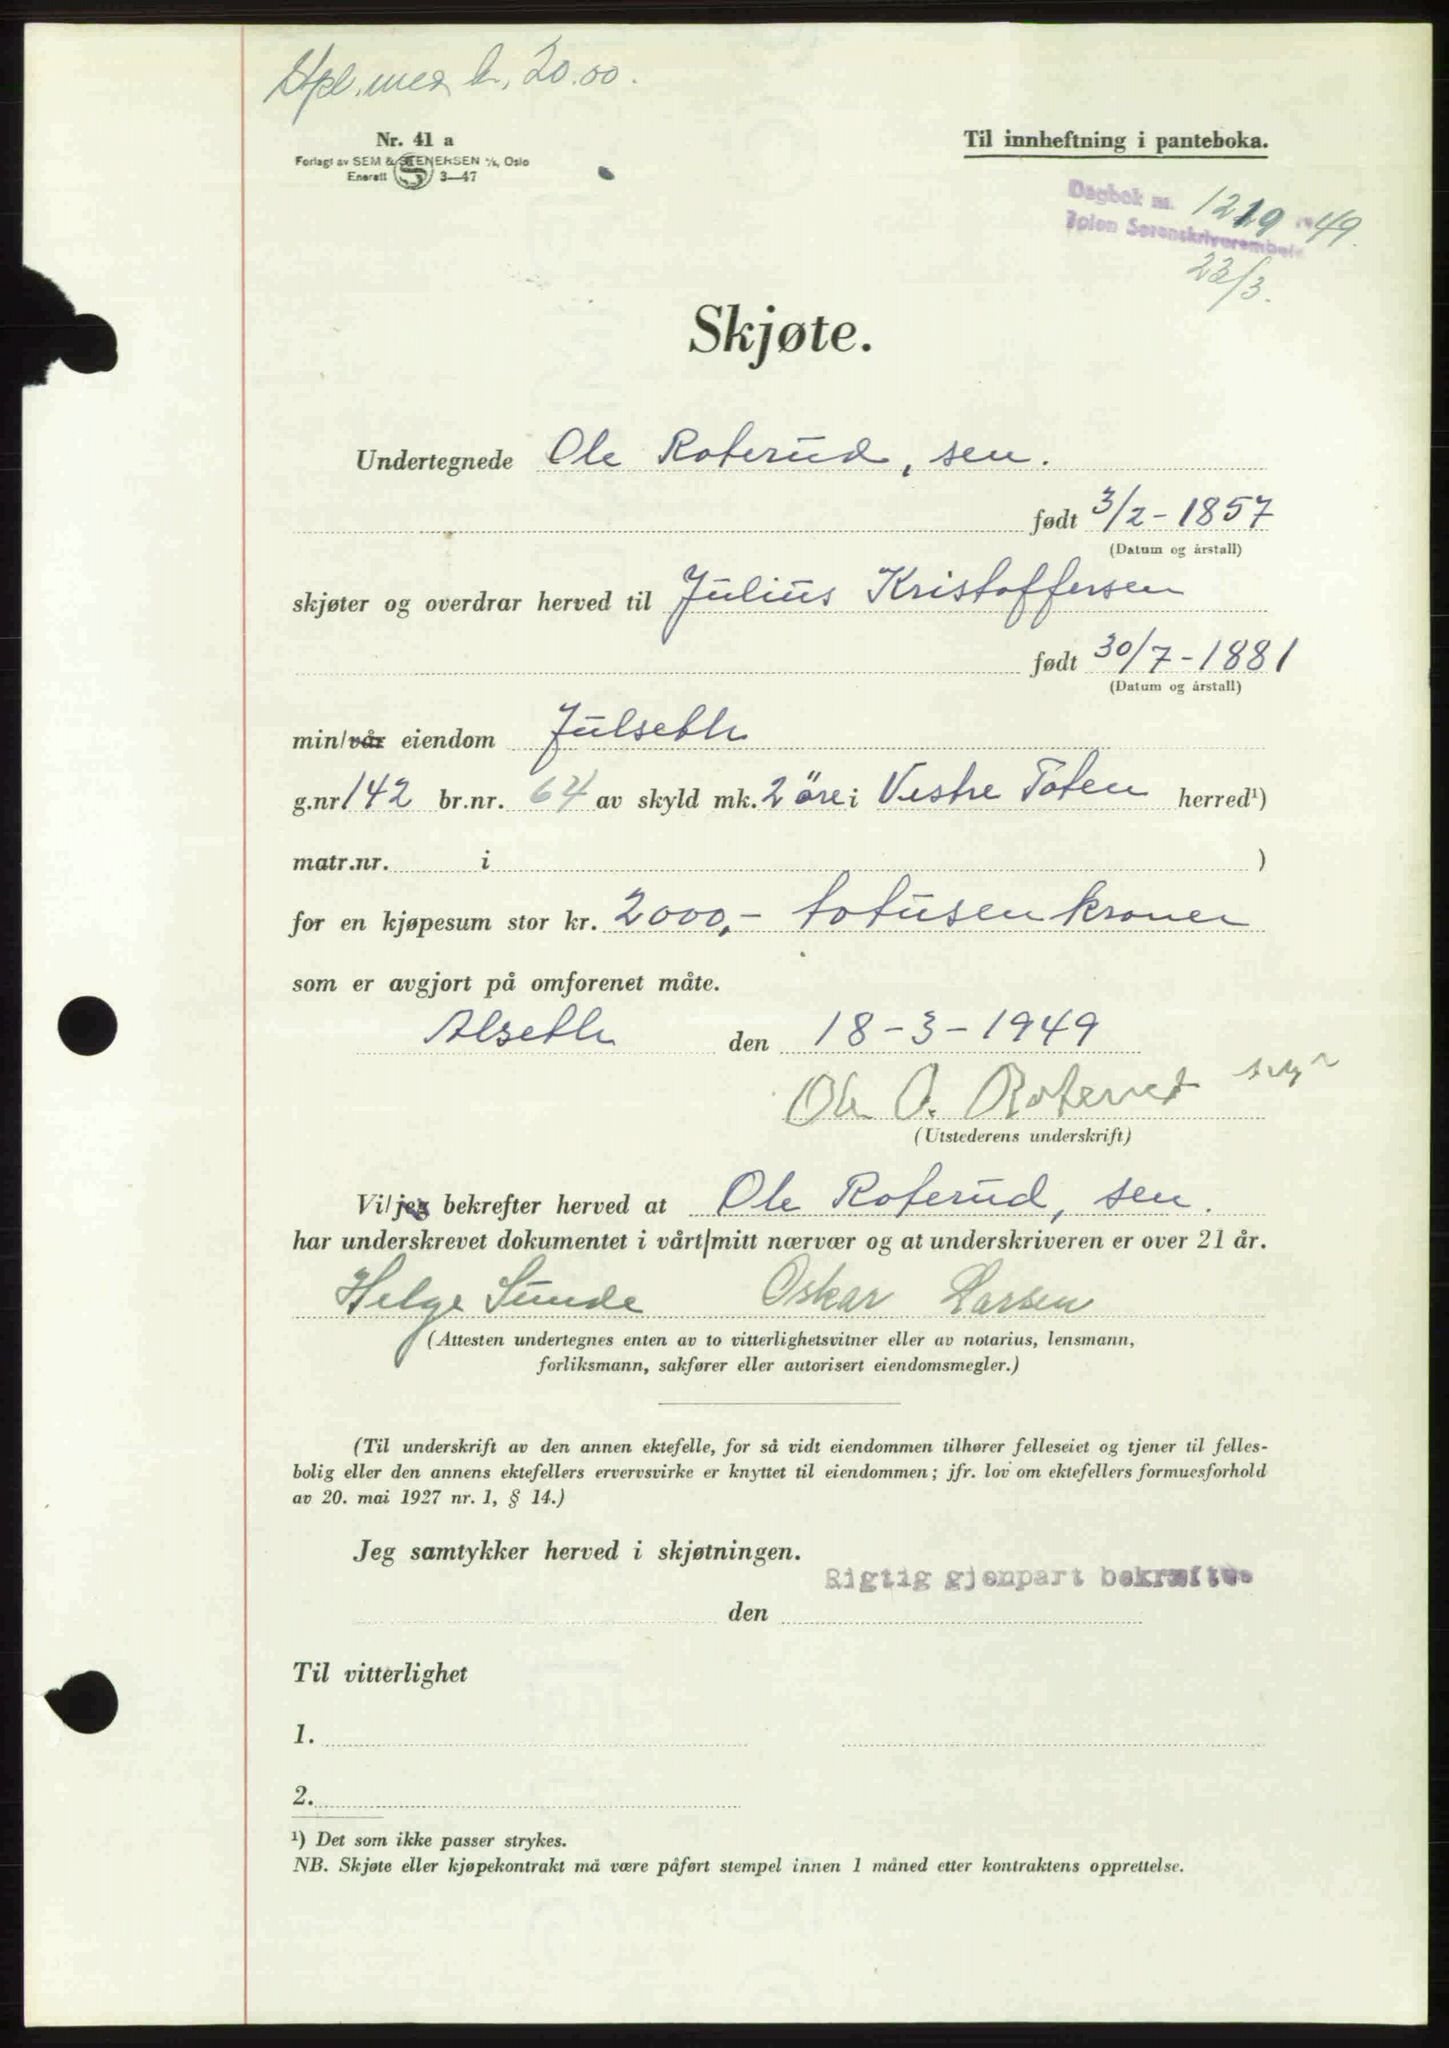 Stpl. med kr. 20.00.
Nr. 41 a
Forlagt av SEM & STENERSEN A/S, Oslo
Enerett 3—47
Til innheftning i panteboka.
Dagbok nr. 1219 1949.
Toten Sorenskriverembete
23/3.
Skjøte.
Undertegnede Ole Roterud, sen.
født 3/2 - 1857
(Datum og årstall)
skjøter og overdrar herved til Julius Kristoffersen
født 30/7 - 1881
(Datum og årstall)
min/vår eiendom Julseth
g.nr 142 br.nr. 64 av skyld mk. 2 öre i Vestre Toten herred¹)
matr.nr. i )
for en kjøpesum stor kr. 2000,- totusen kroner
som er avgjort på omforenet måte.
Alseth den 18-3-1949
Ole O. Roterud
(Utstederens underskrift)
Vi/jeg bekrefter herved at Ole Roterud, sen.
har underskrevet dokumentet i vårt/mitt nærvær og at underskriveren er over 21 år.
Helge Sunde Oskar Larsen
(Attesten undertegnes enten av to vitterlighetsvitner eller av notarius, lensmann,
forliksmann, sakfører eller autorisert eiendomsmegler.)
(Til underskrift av den annen ektefelle, for så vidt eiendommen tilhører felleseiet og tjener til felles-
bolig eller den annens ektefellers ervervsvirke er knyttet til eiendommen; jfr. lov om ektefellers formuesforhold
av 20. mai 1927 nr. 1, § 14.)
Jeg samtykker herved i skjøtningen.
Rigtig gjenpart bekræftes
den
Til vitterlighet
1.
2.
¹) Det som ikke passer strykes.
NB. Skjøte eller kjøpekontrakt må være påført stempel innen 1 måned etter kontraktens opprettelse.